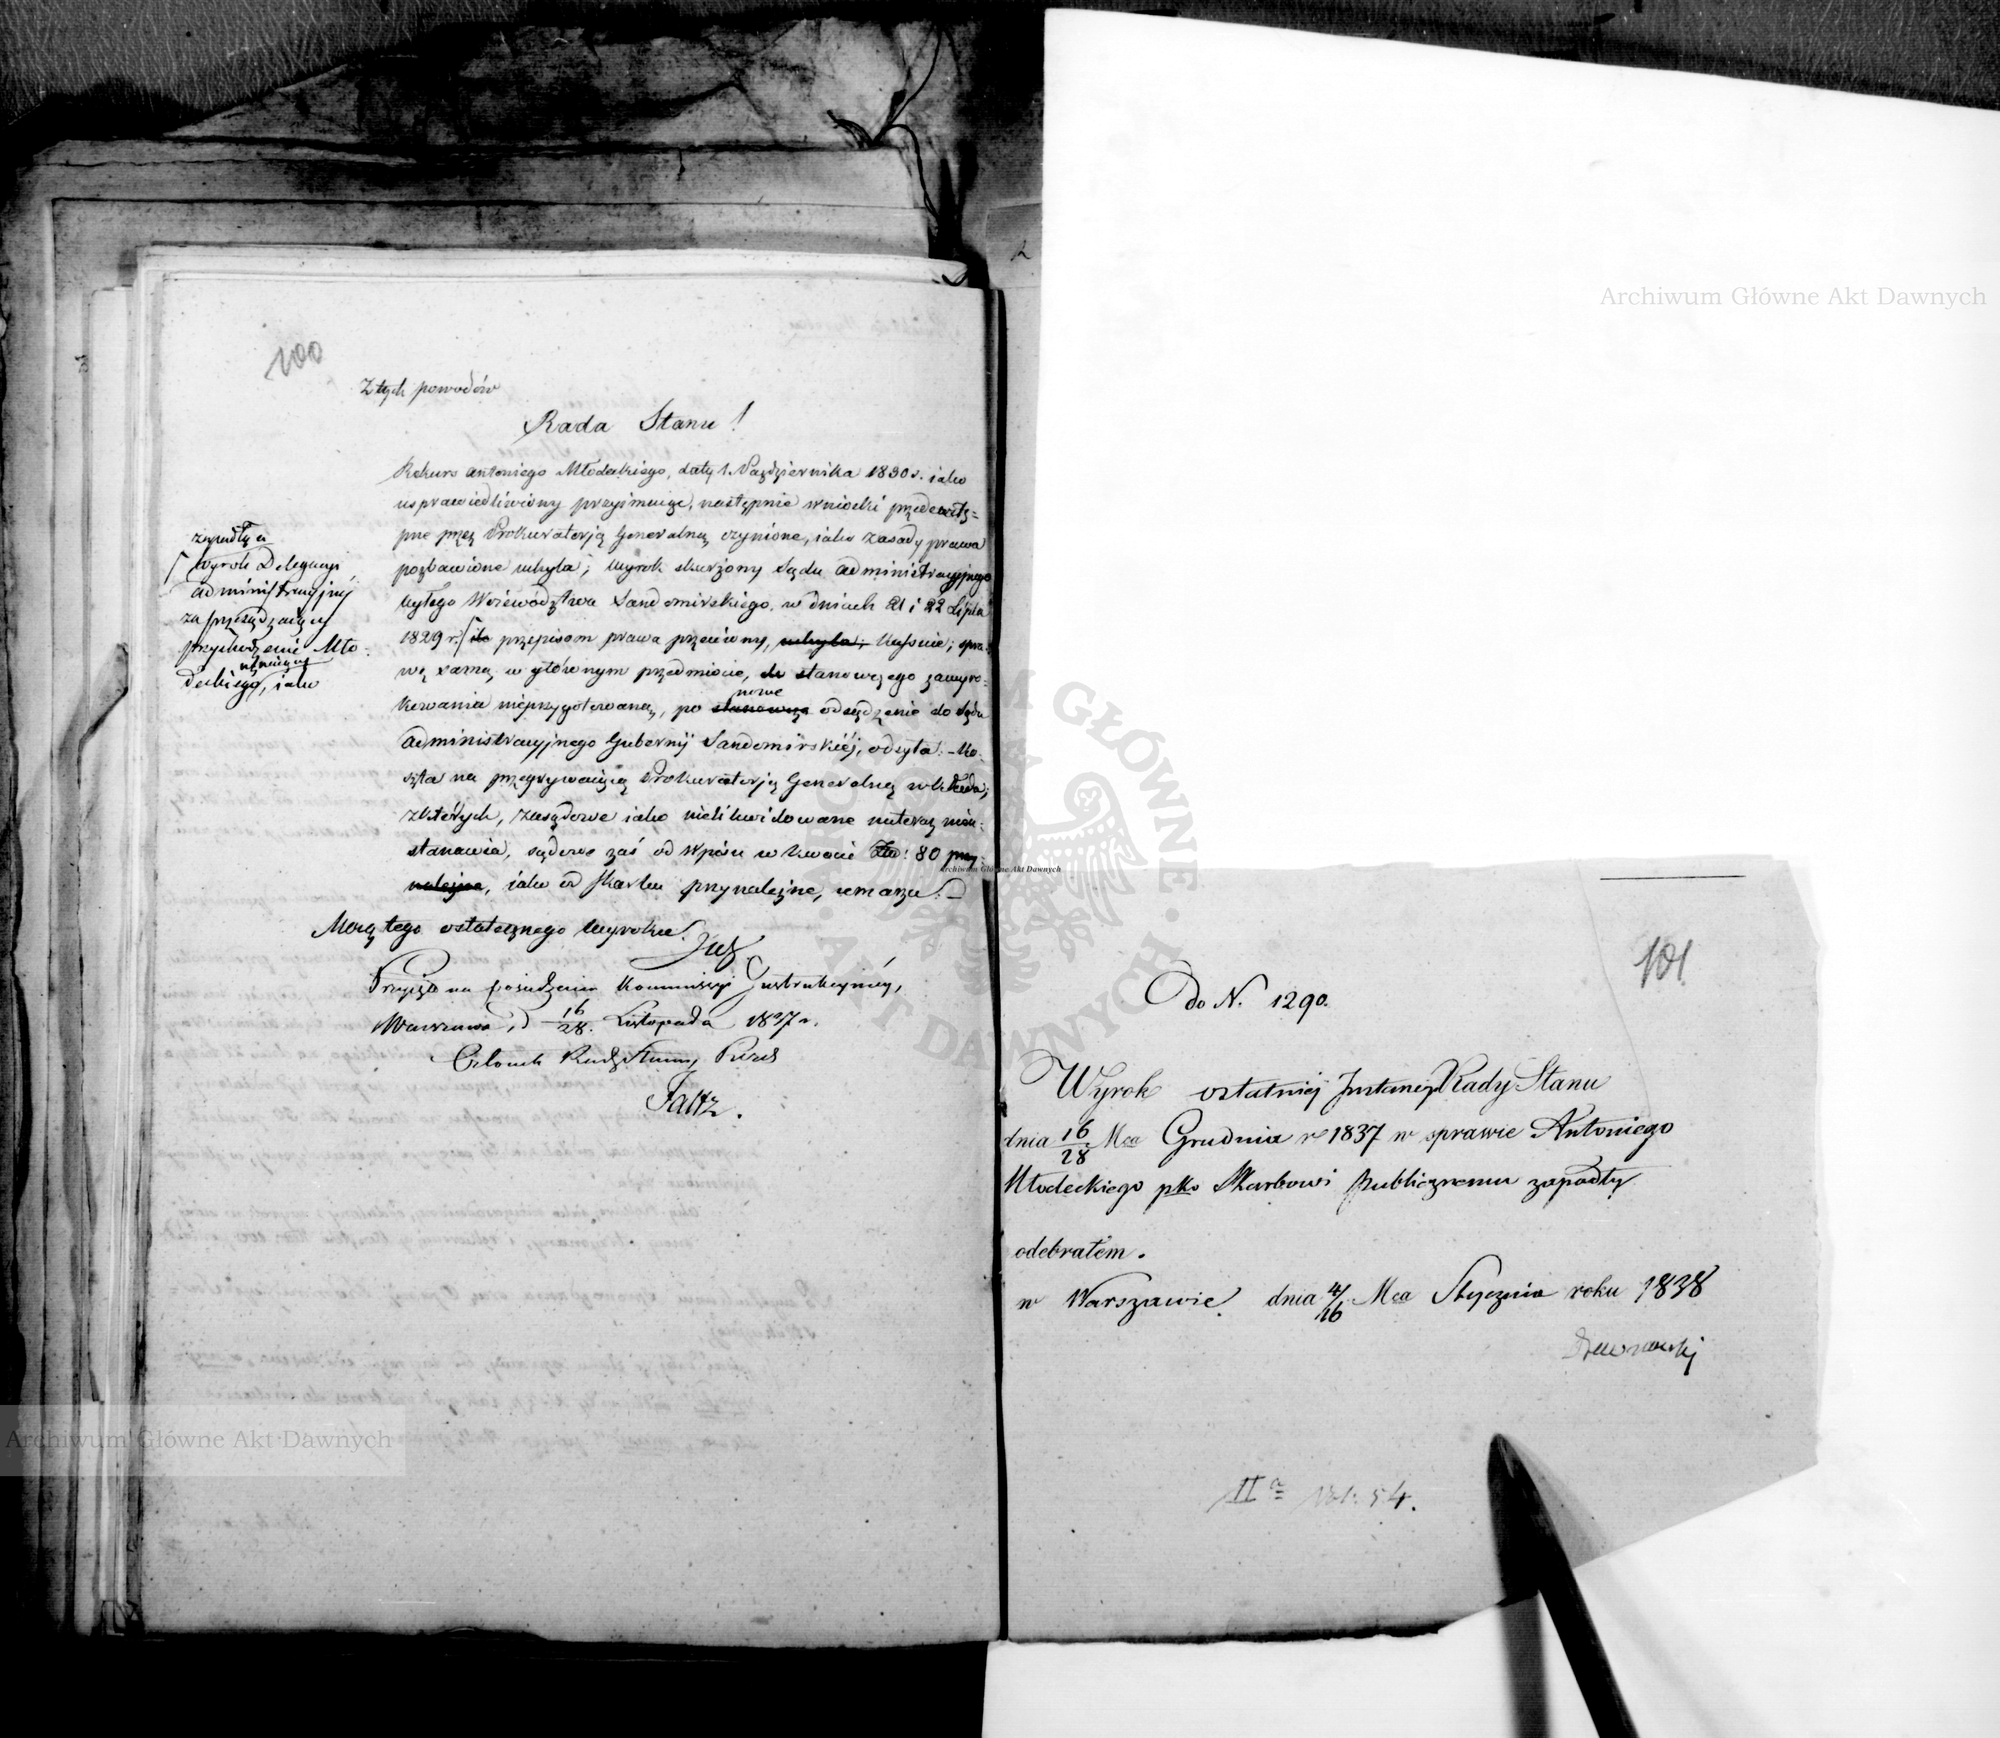 100
Z tych powodów
Rada Stanu!
Rekurs Antoniego Młodeckiego, daty 1. Października 1830 r. iako
usprawiedliwiony przyimuiąc, następnie wnioski przedewstę=
pne przez Prokuratorją Generalną czynione, iako zasady prawa
pozbawione uchyla; wyrok skarżony Sądu administracyjnego
byłego Województwa Sandomirskiego w dniach 21 i 22 Lipca
1829 r. przepisom prawa przeciwny, uchyla; kassuie; spra=
wę samą w głównym przedmiocie, do stanowczego zawyro=
kowania nieprzygotowaną, po stanowcze nowe odsądzenie do Sądu
administracyjnego Gubernij Sandomirskiéj, odsyła. – Ko=
szta na przegrywaiącą Prokuratorją Generalną wkłada;
z których, zasądowe iako nielikwidowane nateraz nieu=
stanawia, sądowe zaś od wpisu w kwocie Złp: 80 przy=
należne, iako od Skarbu przynależne, umarza. –
zapadły a
wyrok Delegacyi
administracyjnéj
zaprzysądzaiący
przychodzenie Mło=
deckiego, iako
Mocą tego ostatecznego wyroku.
Przyięto na posiedzeniu Kommissyi Instrukcyinéy,
Warszawa, d. 16/28. Listopada 1837 r.
Członek Rady Stanu, Prezes
Faltz.
101
Do N. 1290.
Wyrok ostatniéj Instancyi Rady Stanu
dnia 16/28 Mca Grudnia r 1837 w sprawie Antoniego
Młodeckiego pko Skarbowi Publicznemu zapadły
odebrałem.
w Warszawie. dnia 4/16 Mca Stycznia roku 1838
II a Vol: 54.
Archiwum Główne Akt Dawnych
Archiwum Główne Akt Dawnych
Archiwum Główne Akt Dawnych
ARCHIWUM GŁÓWNE AKT DAWNYCH